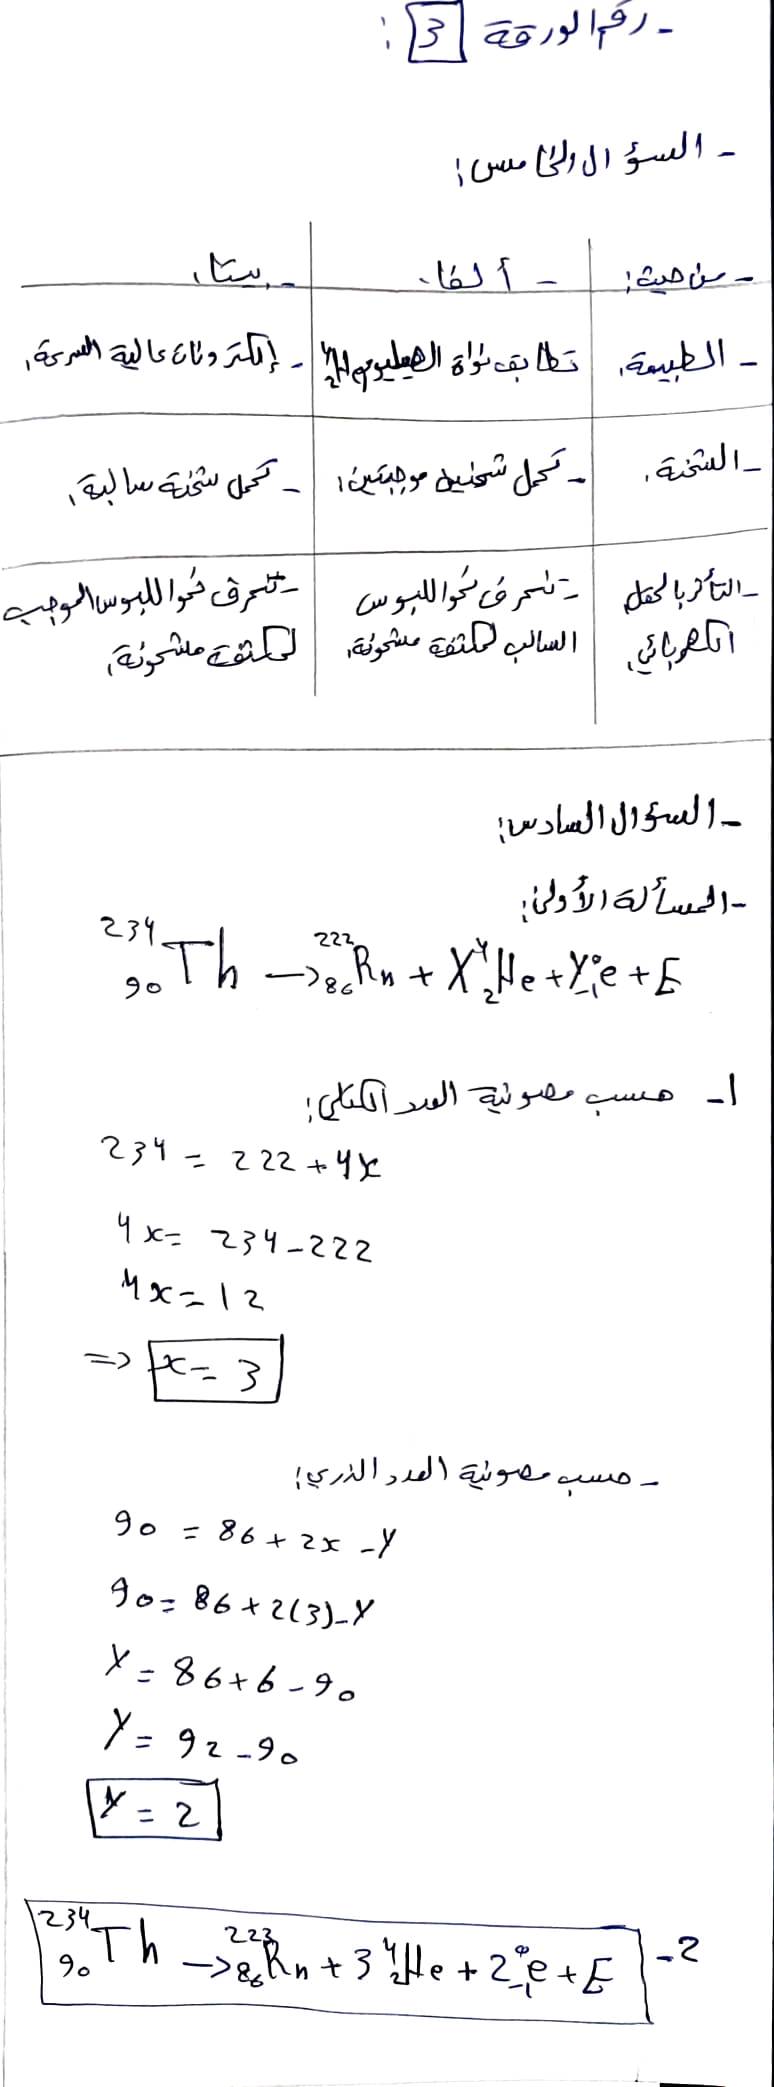 - رقم الورقة 3 :
- السؤال الخامس :
- من حيث : - ألفا . - بيتا .
- الطبيعة . تطابق نواة الهيليوم ⁴₂He - إلكترونات عالية السرعة .
- الشحنة . - تحمل شحنتين موجبتين . - تحمل شحنة سالبة .
- التأثر بالحقل - تنحرف نحو اللبوس - تنحرف نحو اللبوس الموجب
الكهربائي . السالب لمكثفة مشحونة . لمكثفة مشحونة .
- السؤال السادس :
- المسألة الأولى :
²³⁴₉₀Th → ²²²₈₆Rn + X ⁴₂He + Y ⁰₋₁e + E
1- حسب مصونية العدد الكتلي :
234 = 222 + 4x
4x = 234 - 222
4x = 12
=> x = 3
- حسب مصونية العدد الذري :
90 = 86 + 2x - y
90 = 86 + 2(3) - y
y = 86 + 6 - 90
y = 92 - 90
y = 2
2- ²³⁴₉₀Th → ²²³₈₆Rn + 3 ⁴₂He + 2 ⁰₋₁e + E